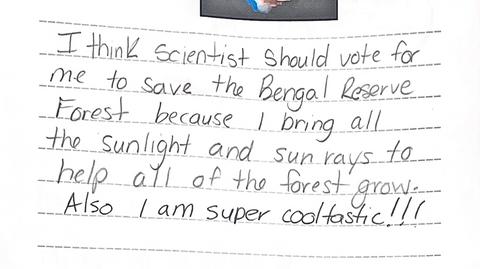 I think scientist should vote for
me to save the Bengal Reserve
Forest because I bring all
the sunlight and sun rays to
help all of the forest grow.
Also I am super cooltastic!!!